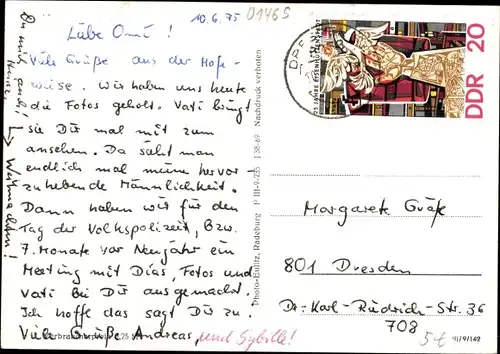 10.6.75
01465
Liebe Omi!
Viele Grüße aus der Hofe-
wiese. Wir haben uns heute
die Fotos geholt. Vati bringt
sie Dir mal mit zum
ansehen. Da sieht man
endlich mal meine hervor-
zuhebende Männlichkeit.
Dann haben wir für den
Tag der Volkspolizei, bzw.
7. Monate vor Neujahr ein
Meeting mit Dias, Fotos und
Vati bei Dir ausgemacht.
Ich hoffe das sagt Dir zu.
Viele Grüße Andreas, und Sybille!
Du mir auch!
Photo-Eulitz, Radeburg P III-9-235 J 38-69 Nachdruck verboten
25 JAHRE EISENHÜTTENSTADT
DDR 20
Margarete Gräfe
801 Dresden
Dr.-Karl-Rudrich-Str. 36
708
5t
III/9/142